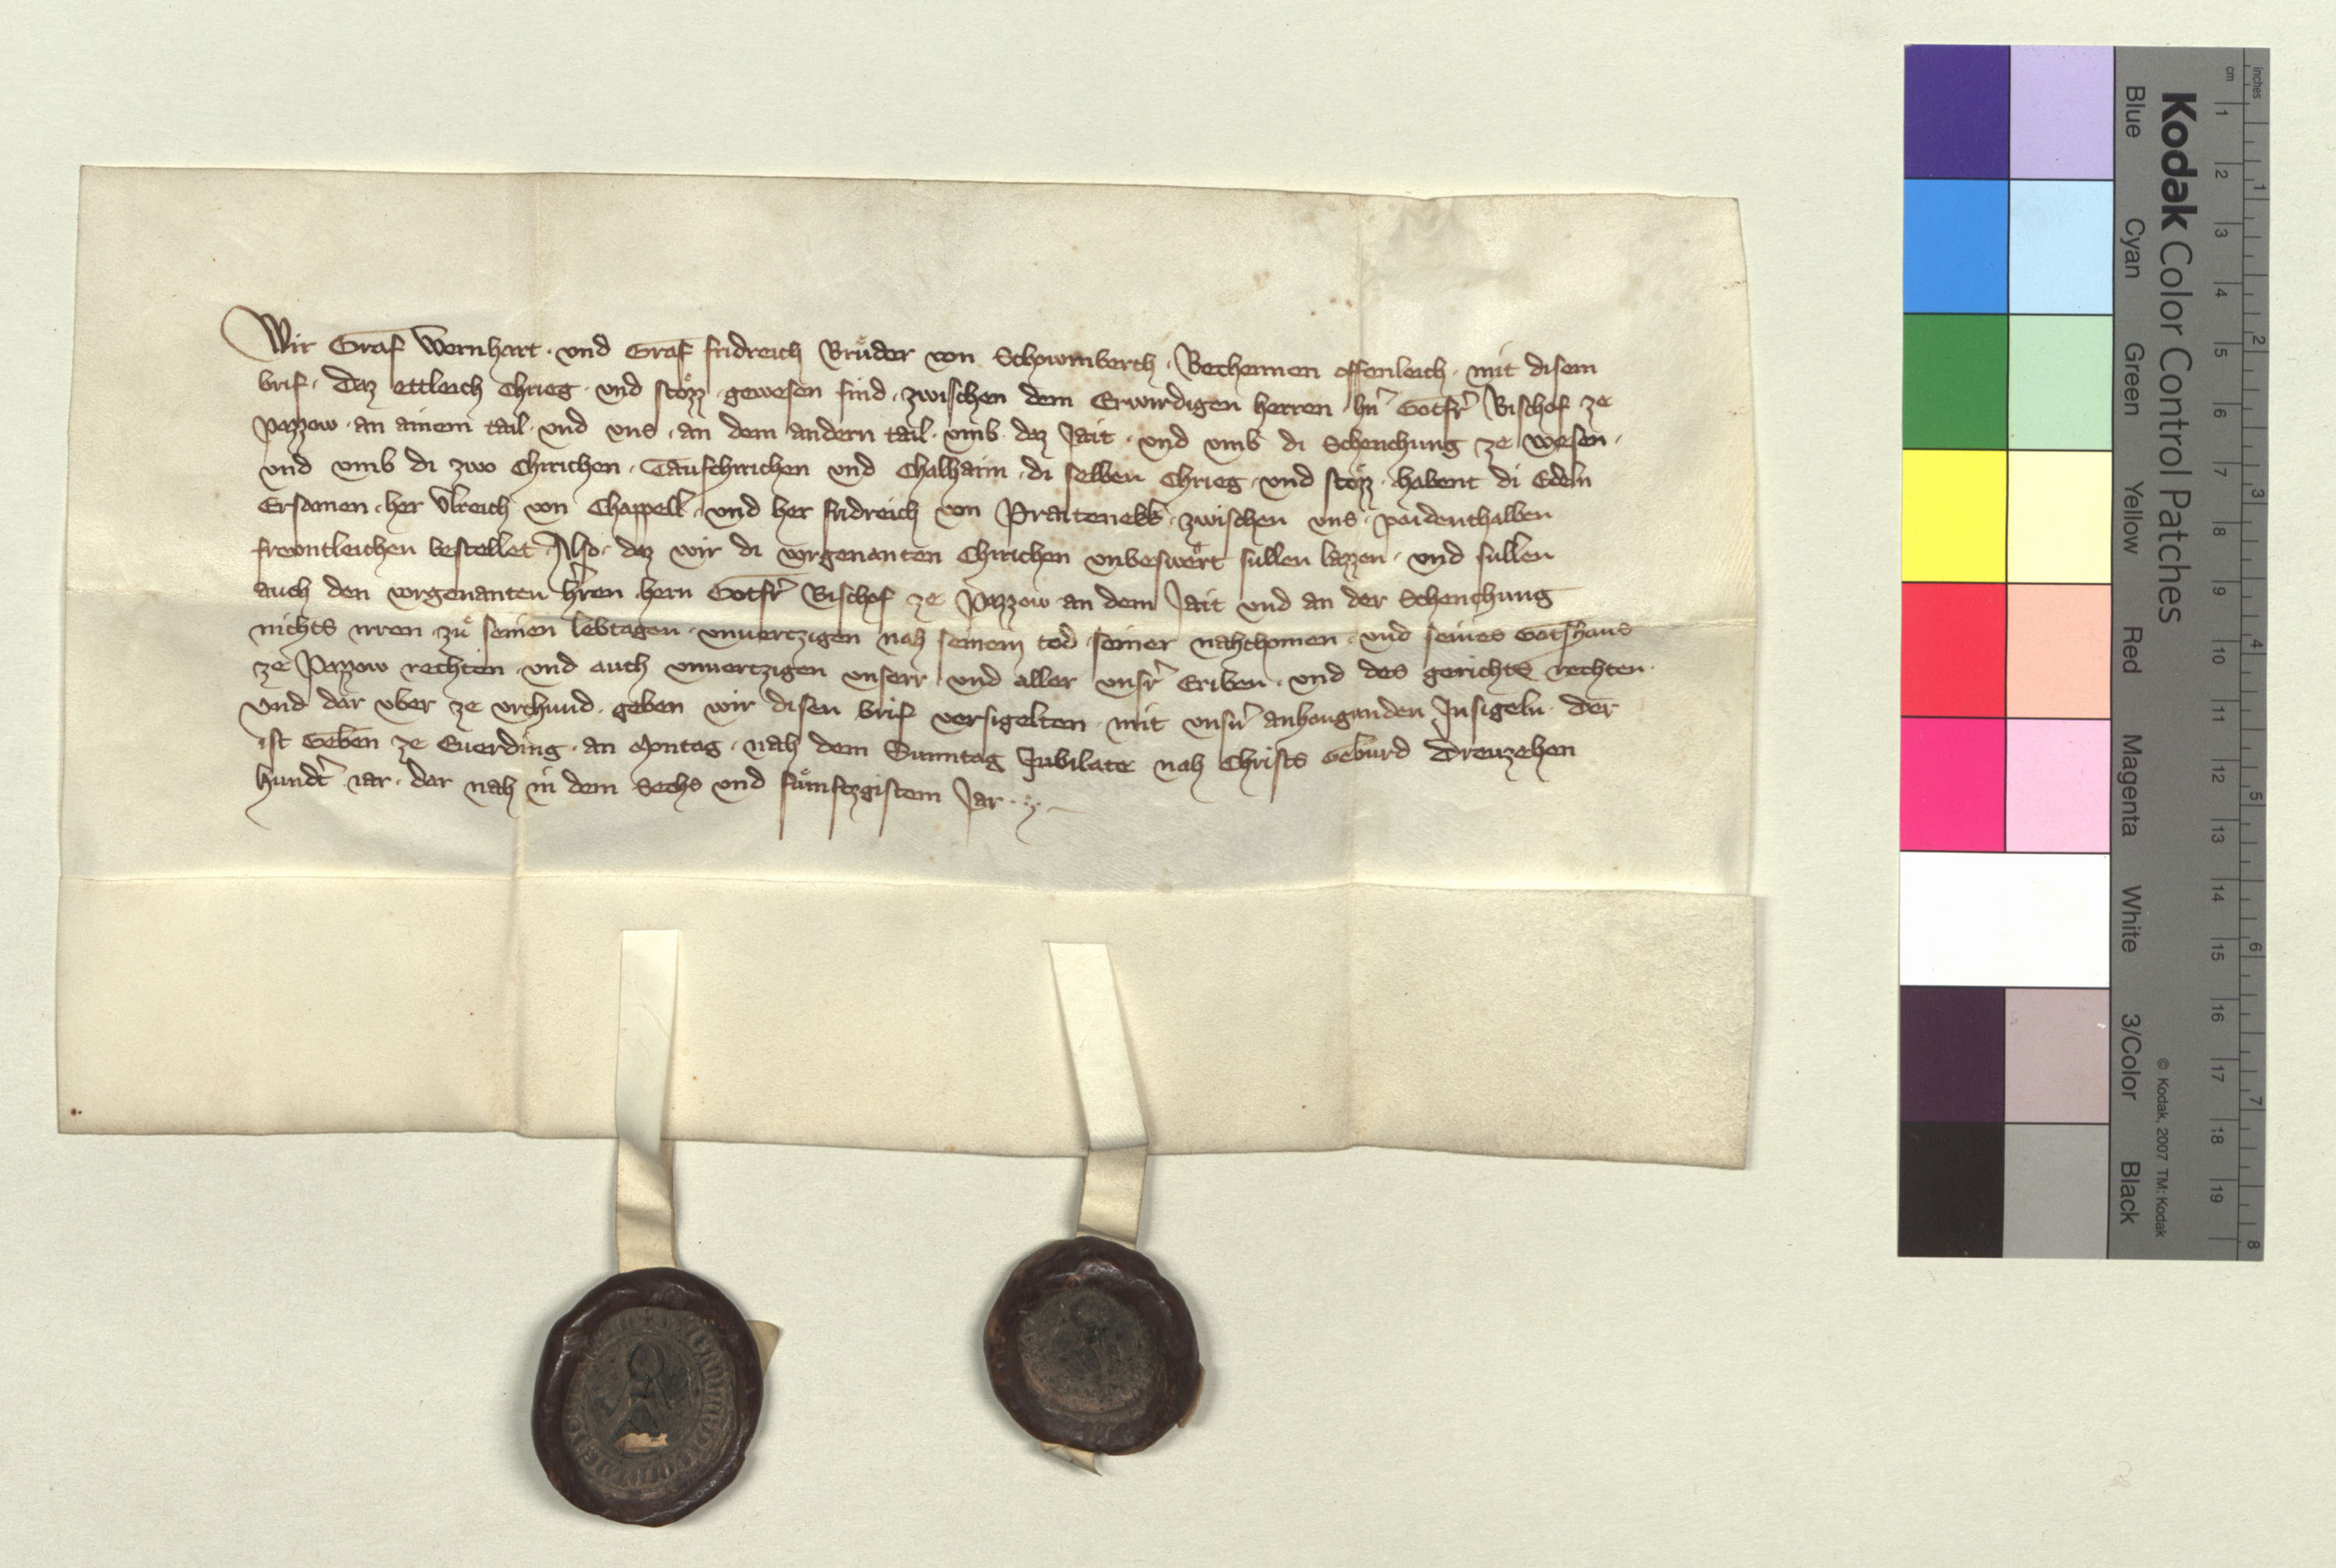 Wir Graf Wernhart · und Graf fridreich Brůder von Schowmberch · Bechennen offenleich · mit disem
brif · daz ettleich chrieg · und stözz · gewesen sind · zwischen dem Erwirdigen herren hn̄ Gotfr̄ Bischof ze
pazzow · an ainem tail · und uns · an dem andern tail · umb daz Jait · und umb di Schenchung ze wesen ·
und umb di zwo Chirichen · Taufchirichen und Chalhaim · di selben Chrieg · und stözz · habent di Edeln
Ersamen · her Ulreich von Chappell · und her fridreich von Praitenekk · zwischen uns · paidenthalben
frewntleichen bestellet · Also · daz wir di vorgenanten Chirichen unbeswërt sullen lazzen · und sullen
auch den vorgenanten h̄ren hern Gotfr̄ Bischof ze Pazzow an dem Jait und an der Schenchung
nichts irren · zů seinen lebtagen · unuertzigen nah seinem tod seiner nahchomen · und seines Gotshaus
ze Pazzow rechten · und auch unuertzigen unserr · und aller unsr̄ Eriben · und des gerichts rechten ·
Und dar uber ze urchund · geben wir disen brif versigelten · mit unsn̄ anhangunden Insigeln · Der
ist Geben ze Euerding · an Montag · nah dem Sunntag Jubilate nah Christs Geburd Dreuzehen
hundt̄ iar · dar nah in dem Sechs und fůmftzgistem Jar ·
Kodak Color Control Patches
Blue Cyan Green Yellow Red Magenta White 3/Color Black
© Kodak, 2007 TM: Kodak
cm 1 2 3 4 5 6 7 8 9 10 11 12 13 14 15 16 17 18 19
inches 1 2 3 4 5 6 7 8